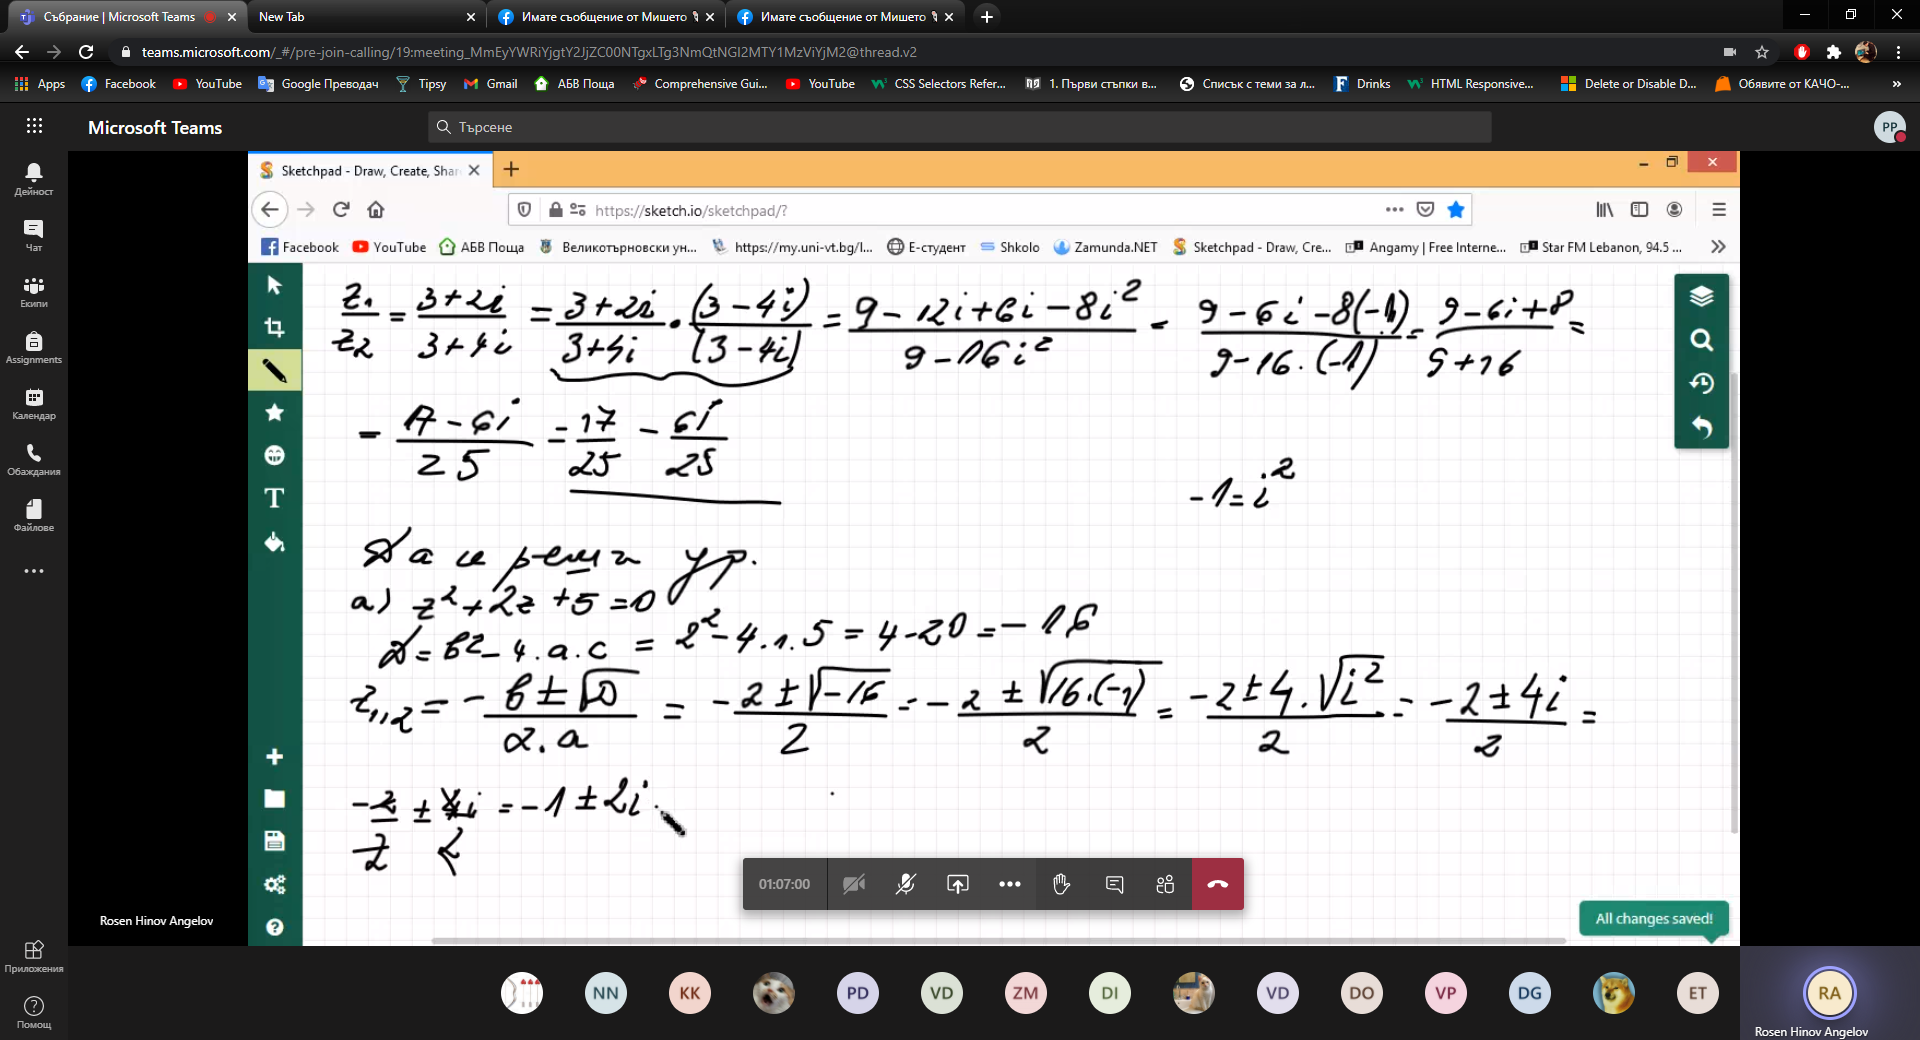 Събрание | Microsoft Teams
New Tab
Имате съобщение от Мишето
Имате съобщение от Мишето
teams.microsoft.com/_#/pre-join-calling/19:meeting_MmEyYWRiYjgtY2JjZC00NTgxLTg3NmQtNGI2MTY1MzViYjM2@thread.v2
Apps Facebook YouTube Google Преводач Tipsy Gmail АБВ Поща Comprehensive Gui... YouTube CSS Selectors Refer... 1. Първи стъпки в... Списък с теми за л... Drinks HTML Responsive... Delete or Disable D... Обявите от КАЧО-... »
Microsoft Teams
Търсене
PP
Дейност
Чат
Екипи
Assignments
Календар
Обаждания
Файлове
Приложения
Помощ
Sketchpad - Draw, Create, Shar
https://sketch.io/sketchpad/?
Facebook YouTube АБВ Поща Великотърновски ун... https://my.uni-vt.bg/l... Е-студент Shkolo Zamunda.NET Sketchpad - Draw, Cre... Angamy | Free Interne... Star FM Lebanon, 94.5 ... »
z₁/z₂ = (3+2i)/(3+4i) = (3+2i)/(3+4i) · (3-4i)/(3-4i) = (9-12i+6i-8i²)/(9-16i²) = (9-6i-8(-1))/(9-16.(-1)) = (9-6i+8)/(9+16) =
= (17-6i)/25 = 17/25 - 6i/25
-1=i²
Да се реши ур.
а) z²+2z+5=0
D=b²-4.a.c = 2²-4.1.5=4-20=-16
z₁,₂ = (-b±√D)/(2.a) = (-2±√-16)/2 = (-2±√16.(-1))/2 = (-2±4.√i²)/2 = (-2±4i)/2 =
-2/2 ± 4i/2 = -1±2i
01:07:00
All changes saved!
Rosen Hinov Angelov
NN KK PD VD ZM DI VD DO VP DG ET RA
Rosen Hinov Angelov